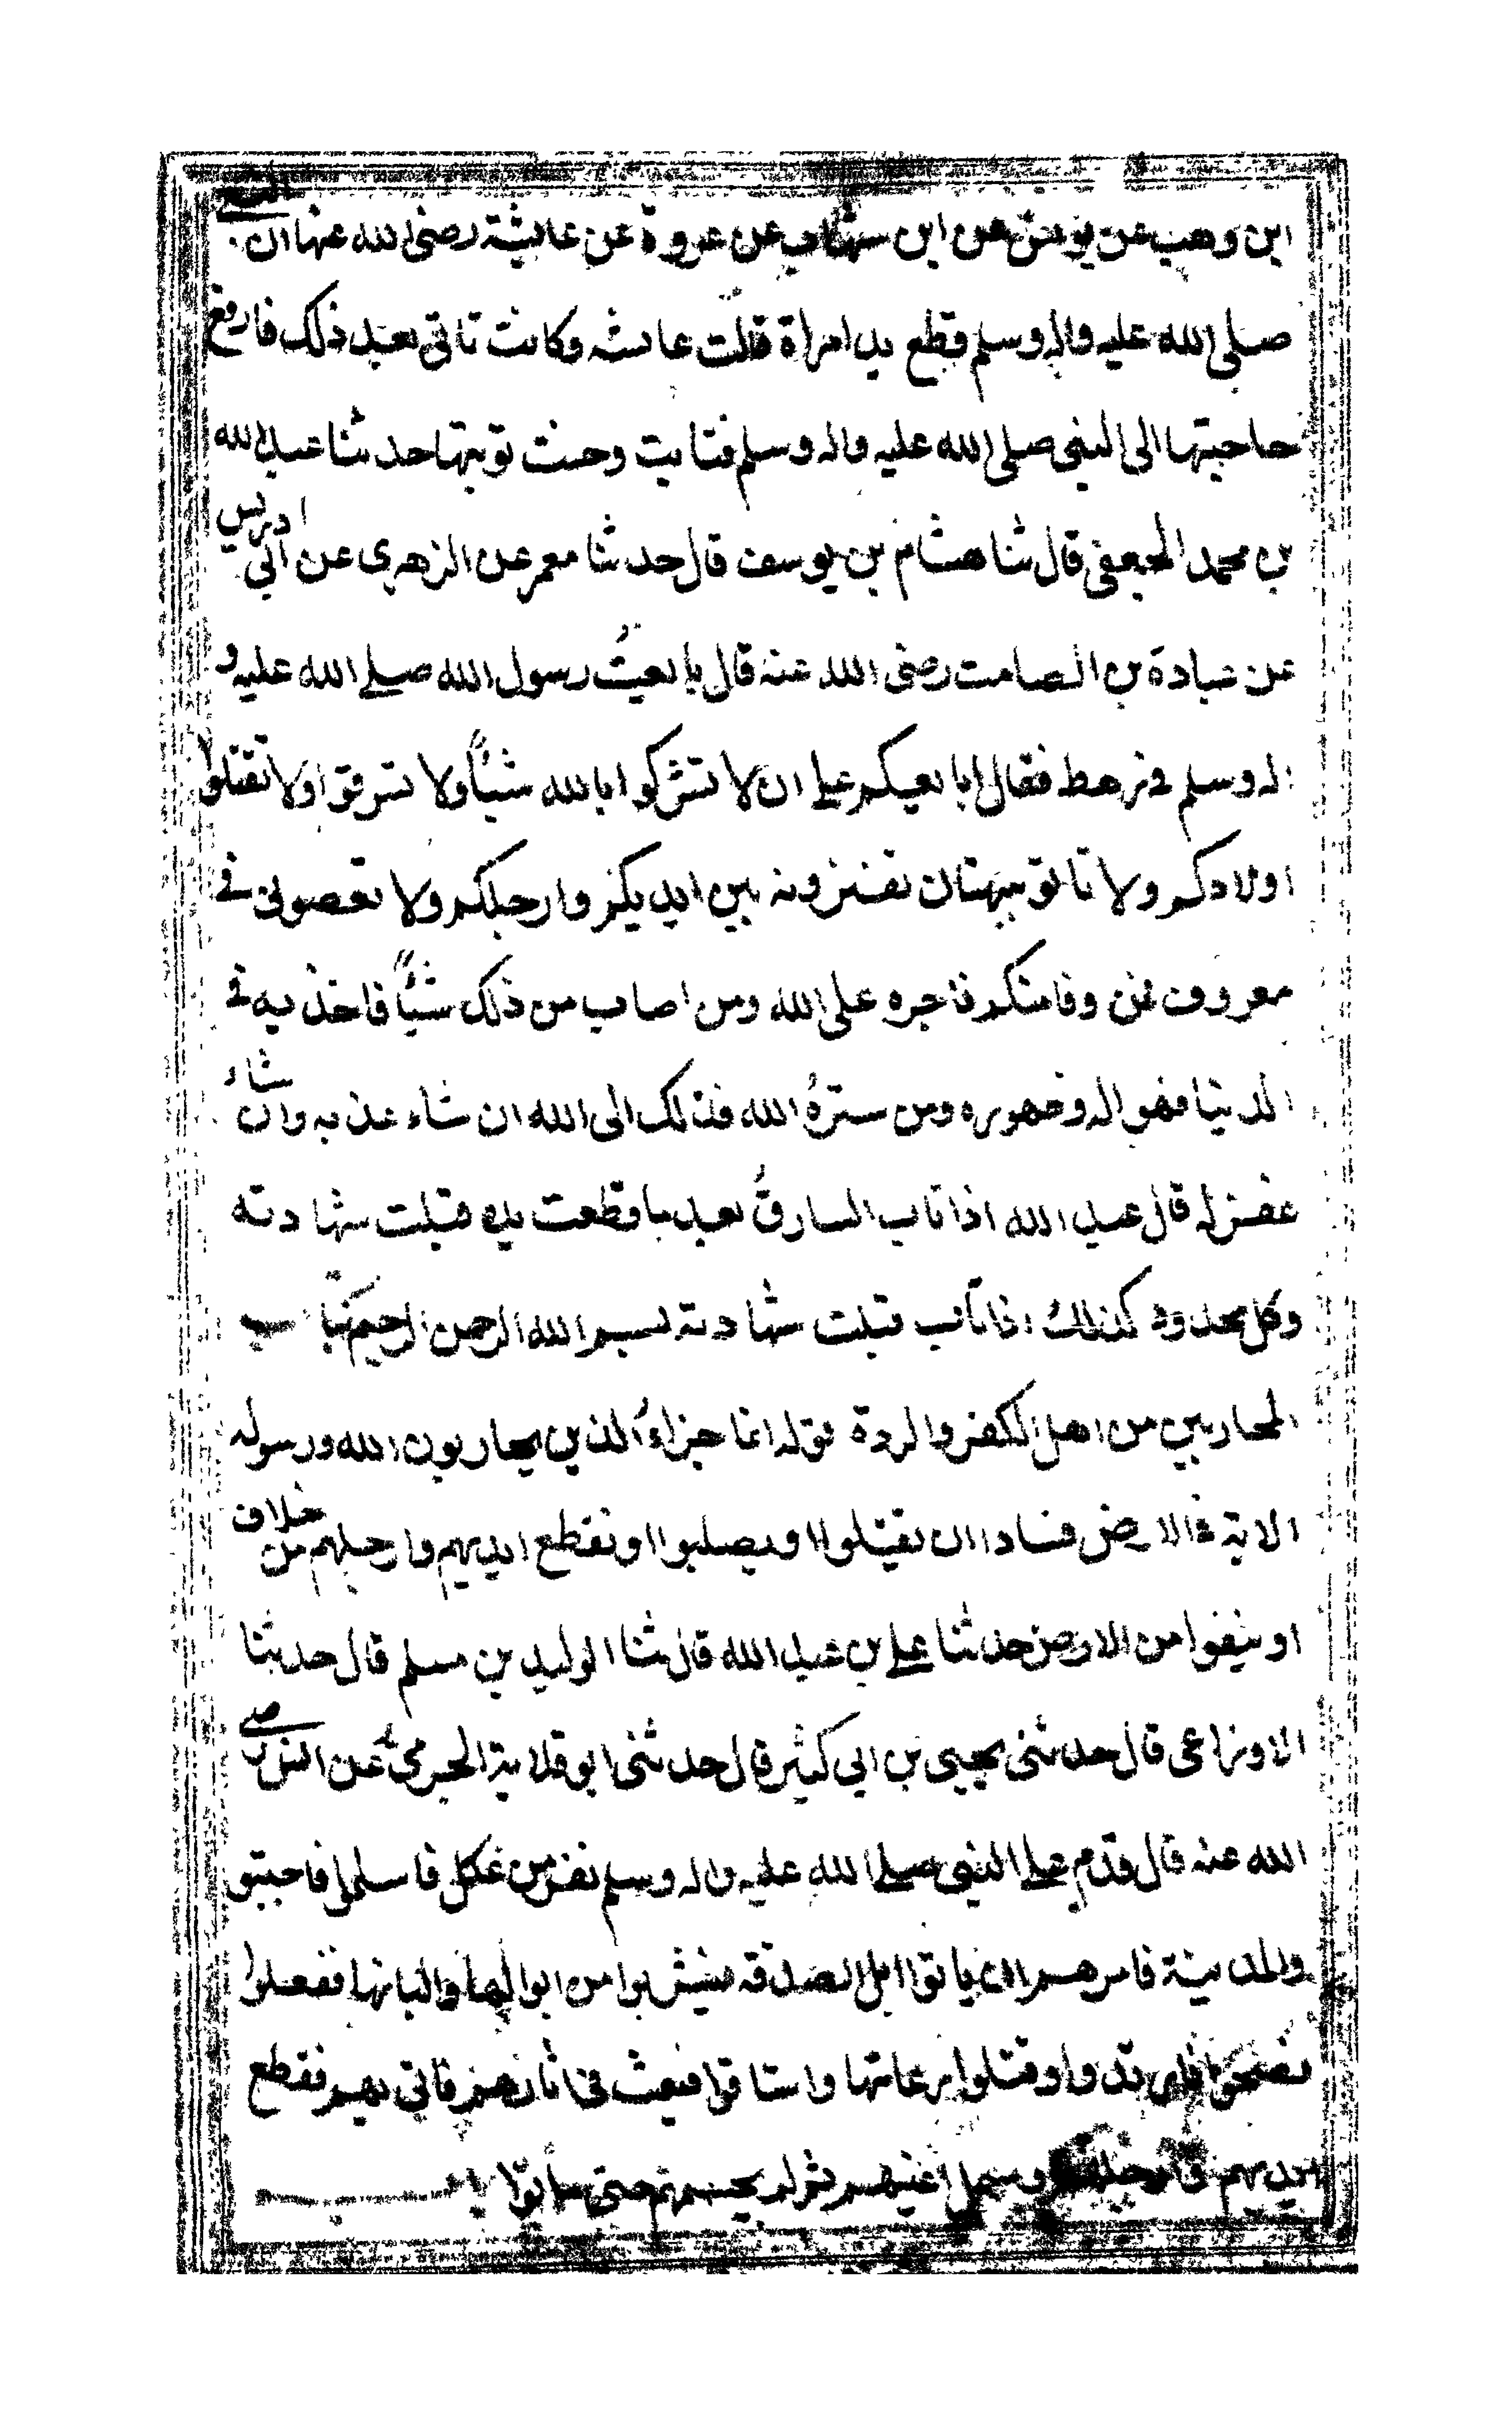 ابن وهب عن يونس عن ابن شهاب عن عروة عن عائشة رضى الله عنها ان النبي
صلى الله عليه واله وسلم قطع يد امراة قالت عائشه وكانت تاتى بعد ذلك فارفع
حاجتها الى النبى صلى الله عليه واله وسلم فتابت وحسنت توبتها حدثنا عبد الله
بن محمد الجعفى قال ثنا هشام بن يوسف قال حدثنا معمر عن الزهرى عن ابي ادريس
عن عبادة بن الصامت رضى الله عنه قال بايعتُ رسول الله صلے الله عليه و
اله وسلم في رهط فقال ابايعكم على ان لا تشركوا بالله شيئاً ولا تسرقوا ولا تقتلوا
اولادكم ولا تاتو ببهتان تفترونه بين ايديكم وارجلكم ولا تعصونى في
معروف فمن وفا منكم فاجره على الله ومن اصاب من ذلك شيئاً فاخذ به في
الدنيا فهو اله وطهوره ومن سترهُ الله فذالك الى الله ان شاء عذبه وان شاء
غفر له قال عبد الله اذا تاب السارقُ بعد ما قطعت يده قبلت شهادته
وكل محدود كذلك اذا تاب قبلت شهادته بسم الله الرحمن الرحيم كتاب
المحاربين من اهل الكفر والردة قوله انما جزاءُ الذين يحاربون الله ورسوله
الاية في الارض فسادا ان يقتلوا او يصلبوا او تقطع ايديهم وارجلهم من خلاف
او ينفوا من الارض حدثنا علے بن عبد الله قال ثنا الوليد بن مسلم قال حدثنا
الاوزاعى قال حدثنى يحيى بن ابي كثير قال حدثنى ابو قلابة الجرمىُّ عن انس رضے
الله عنه قال قدم علے النبى صلے الله عليه واله وسلم نفر من عكل فاسلموا فاجتوو
والمدينة فامرهم ان ياتوا ابل الصدقه فيشربوا من ابوالها والبانها ففعلوا
فصحوا فارتدوا وقتلوا رعاتها واستاقوا فبعث فى اثارهم فاتى بهم فقطع
ايديهم وارجلهم وسمل اعينهم ثم لم يحسمهم حتى ماتوا باب